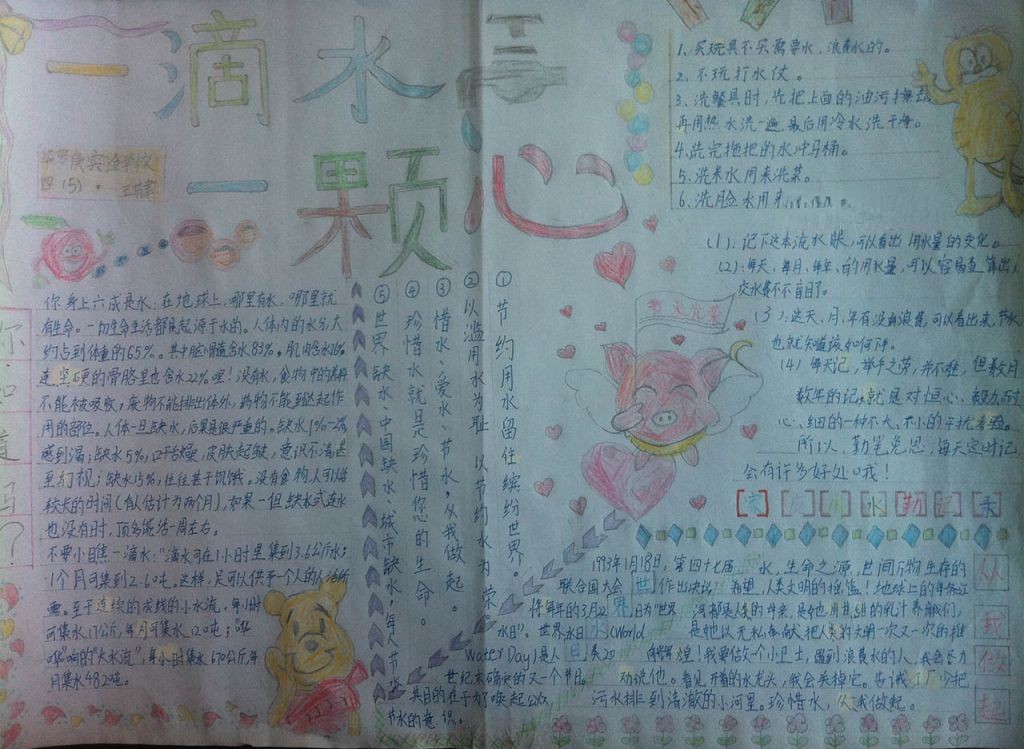 一滴水
一颗心
1、买玩具不买需要水、浪费水的。
2、不玩打水仗。
3、洗餐具时,先把上面的油污擦去
再用热水洗一遍,最后用冷水洗干净。
4、洗完拖把的水冲马桶。
5、洗米水用来洗菜。
6、洗脸水用来
(1):记下这本流水账,可以看出用水量的变化。
(2):每天、每月、每年、的用水量,可以容易查算出,
交水费不盲目了。
(3):这天、月、年有没有浪费,可以看出来,节水
也就知道该如何做。
(4)每天记,举手之劳,并不难,但数月
数年的记,就是对恒心、毅力,耐
心、细的一种不大、不小的干扰考验。
所以,勤笔免思,每天定时记
会有许多好处哦!
水勤记
①节约用水留住缤纷世界。
②以滥用水为耻 以节约水为荣
③惜水、爱水、节水,从我做起。
④珍惜水就是珍惜您的生命。
⑤世界缺水、中国缺水、城市缺水,年人节
你知道吗?
你身上六成是水。在地球上,哪里有水,哪里就
有生命。一切生命生活都是起源于水的。人体内的水分,大
约占到体重的65%。其中脑髓含水83%,肌肉含水76%
连坚硬的骨胳里也含水22%哩!没有水,食物中的养料
不能被吸收,废物不能排出体外,药物不能到达起作
用的部位。人体一旦缺水,后果是很严重的。缺水1%-2%
感到渴;缺水5%,口干舌燥,皮肤起皱,意识不清,甚
至幻视;缺水15%,往往甚于饥饿。没有食物,人可以活
较长的时间(有人估计为两个月),如果一但缺水式连水
也没有时,顶多能活一周左右。
不要小目焦一滴水:"滴水可在1小时里集到3.6公斤水;
1个月可集到2.6吨。这样,足可以供予一个人的人活所
需。至于连续的成线的小水流,每小时
可集水17公斤,每月可集水12吨;"哗
哗"响的"大水流",每小时集水670公斤,每
月集水482吨。
1993年1月18日,第四十七届
联合国大会作出决议,
将每年的3月22日为"世界
水日"。世界水日(World
Water Day)是人类20
世纪末确定的又一个节日。
其目的在于为了唤起公众
节水的意识。
世界水日
水,生命之源,世间万物生存的
希望,人类文明的摇篮!地球上的每条江
河都是人类的母亲,是她用甘甜的乳汁养育我们,
是她以无私奉献把人类的文明一次又一次的推
向辉煌!我要做一个小卫士,遇到浪费水的人,我会尽力
劝说他。看见开着的水龙头,我会关掉它。告诫工厂少把
污水排到清澈的小河里。珍惜水,从我做起。
从我做起